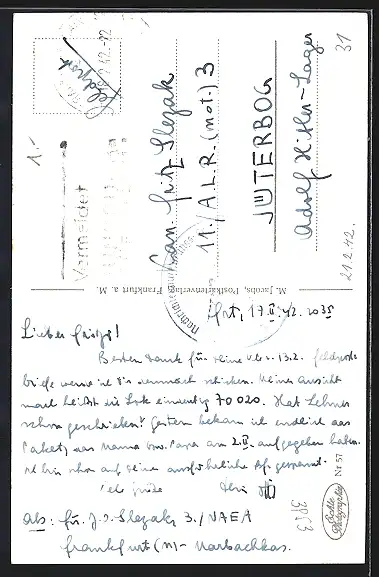 Feldpost
1.-
Vermeidet
Kan. Fritz Slezak
11./A.L.R. (mot.) 3
JÜTERBOG
Adolf Hitler-Lager
31
21.2.42.
M. Jacobs, Postkartenverlag, Frankfurt a. M.
Fft, 17.II.42. 2035
Lieber Fritzs!
Besten Dank für deine v. 13.2. Feldpost-
briefe werde ich dir demnach schicken. Meiner Ansicht
nach heißt die eindeutig 70020. Hat Lehner
schon geschrieben? Gestern bekam ich endlich das
Paket, das Mama bzw. Papa am 2.II. aufgegeben haben.
Ich bin schon auf deine ausführliche gespannt.
Viele Grüße Dein
Abs: Fu. J. Slezak, 3./NAEA
Frankfurt (M)-Marbachkas.
3953
Echte Photographie
Nr. 57